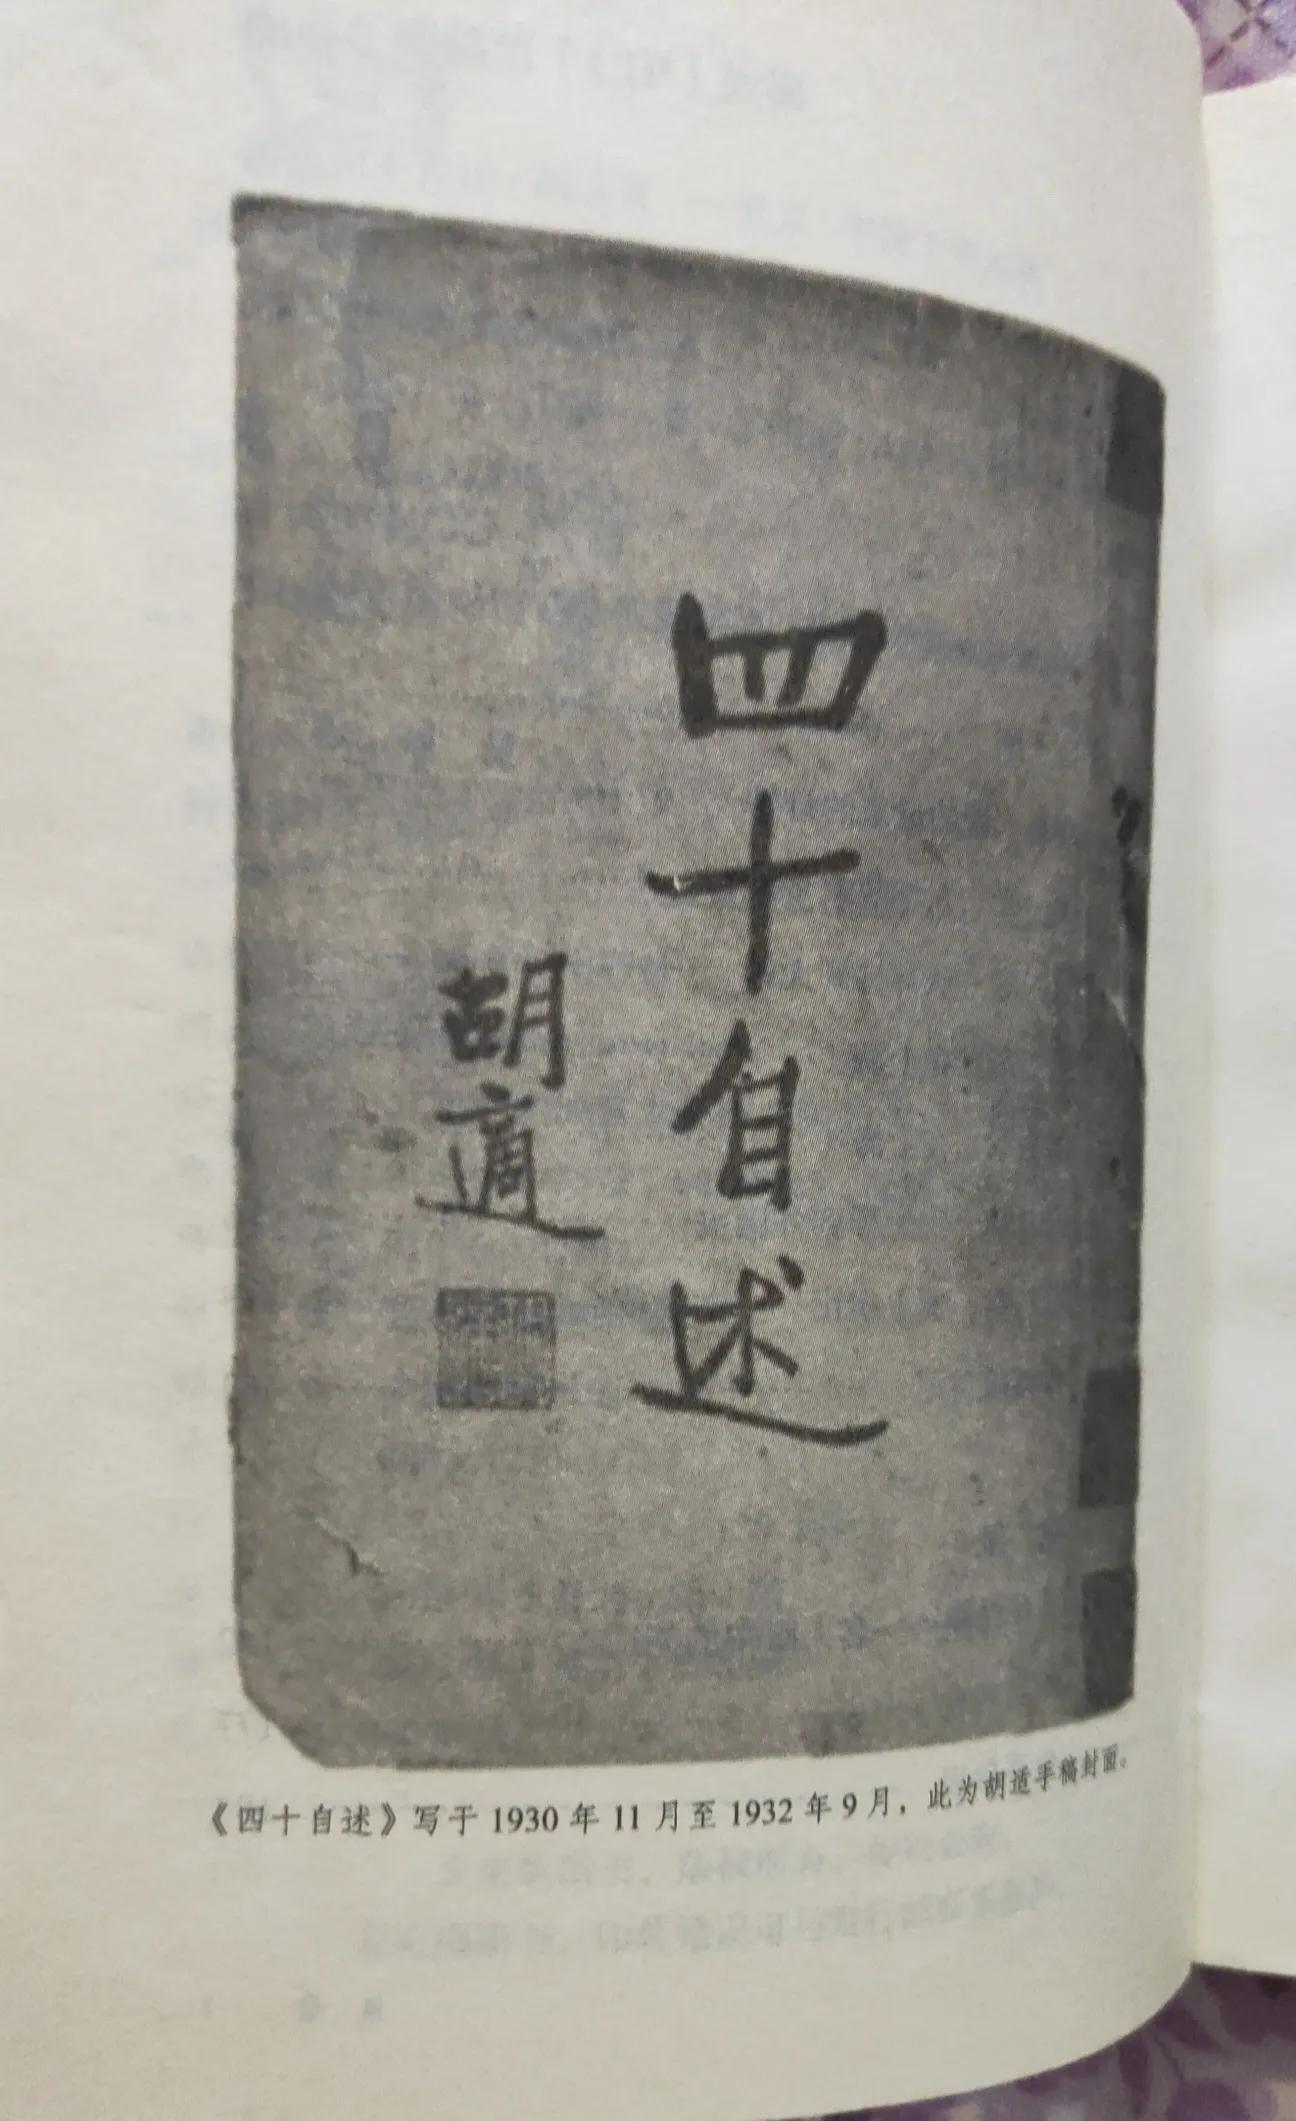 四十自述
胡適
《四十自述》写于1930年11月至1932年9月，此为胡适手稿封面。